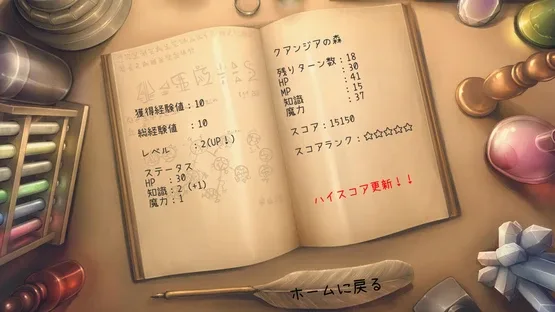 獲得経験値：10
総経験値　：10
レベル　　：2(UP！)
ステータス
HP　：30
知識：2 (+1)
魔力：1
クアンジアの森
残りターン数：18
HP　　　　　：30
MP　　　　　：41
知識　　　　：15
魔力　　　　：37
スコア：15150
スコアランク：☆☆☆☆☆
ハイスコア更新！！
ホームに戻る